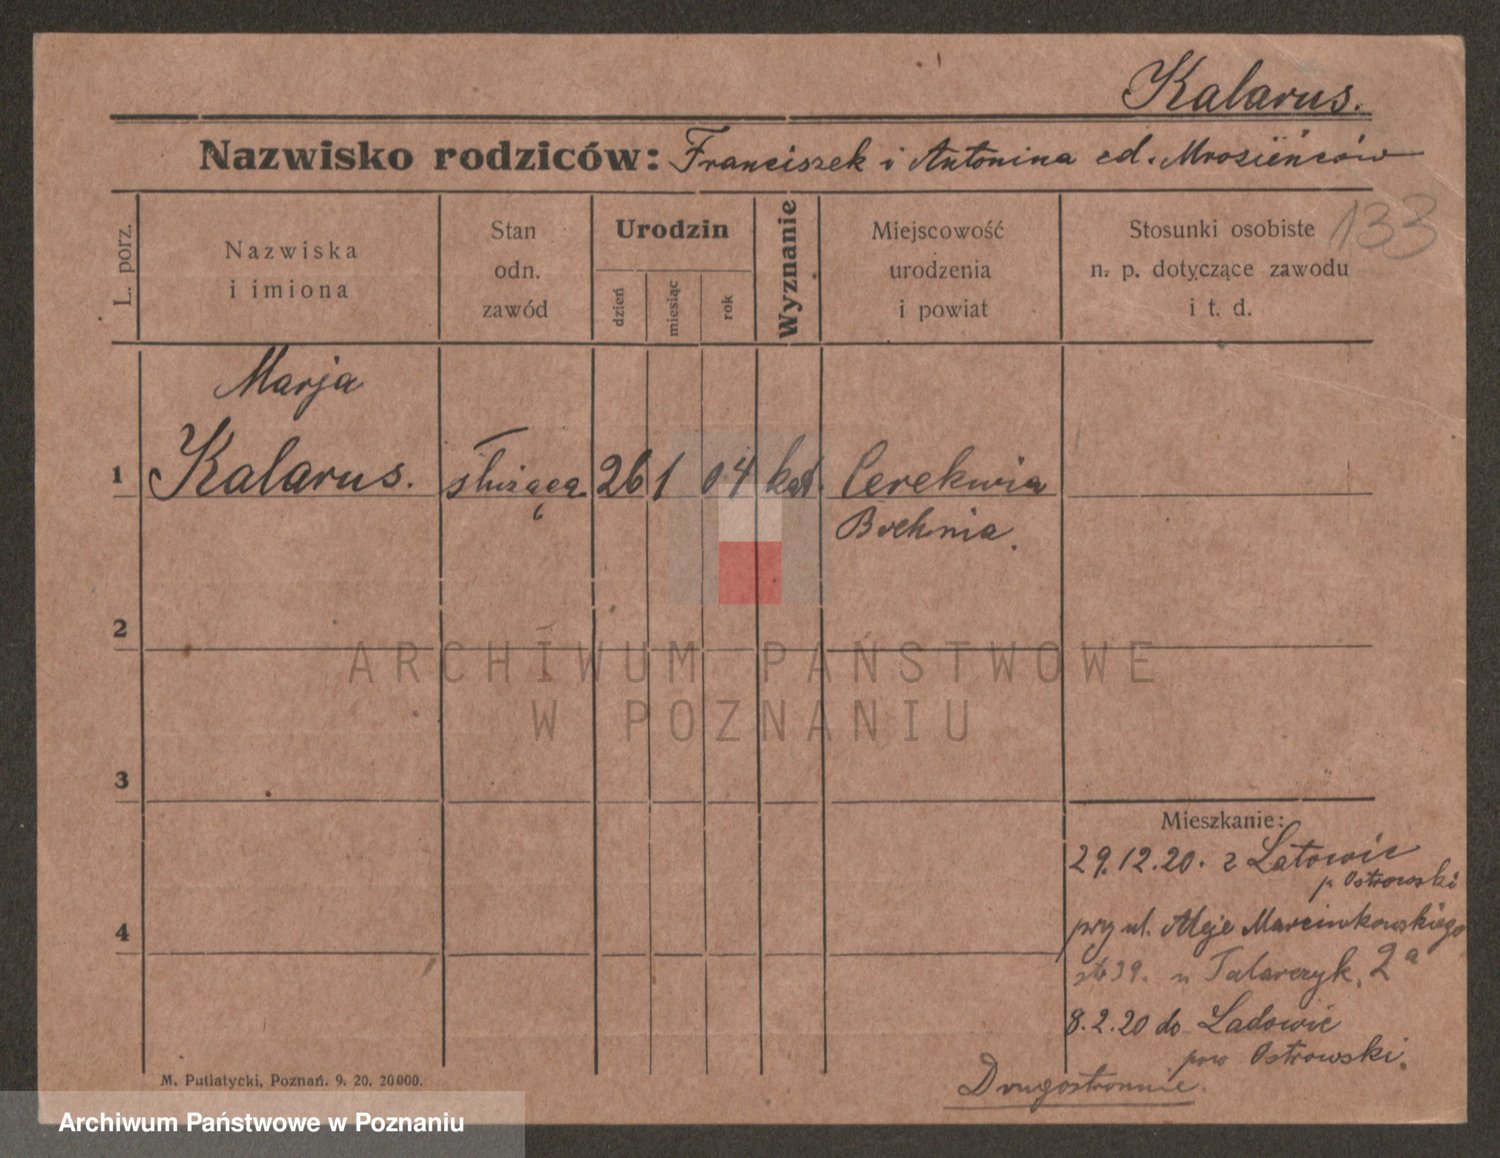 Kalarus.
Nazwisko rodziców: Franciszek i Antonina
133
L. porz.
Nazwiska
i imiona
Stan
odn.
zawód
Urodzin
dzień
miesiąc
rok
Wyznanie
Miejscowość
urodzenia
i powiat
Stosunki osobiste
n. p. dotyczące zawodu
i t. d.
Marja
1 Kalarus. służąca 26 1 04 kat. Cerekwia
Bochnia.
2
ARCHIWUM PAŃSTWOWE
W POZNANIU
3
Mieszkanie:
29.12.20. z Latowic
p. Ostrowski
4
przy ul. Aleje Marcinkowskiego
39. u Talarczyk. 2a
8.2.20 do Ladowic
pow Ostrowski.
Drugostronnie.
M. Putiatycki, Poznań. 9. 20. 20000.
Archiwum Państwowe w Poznaniu